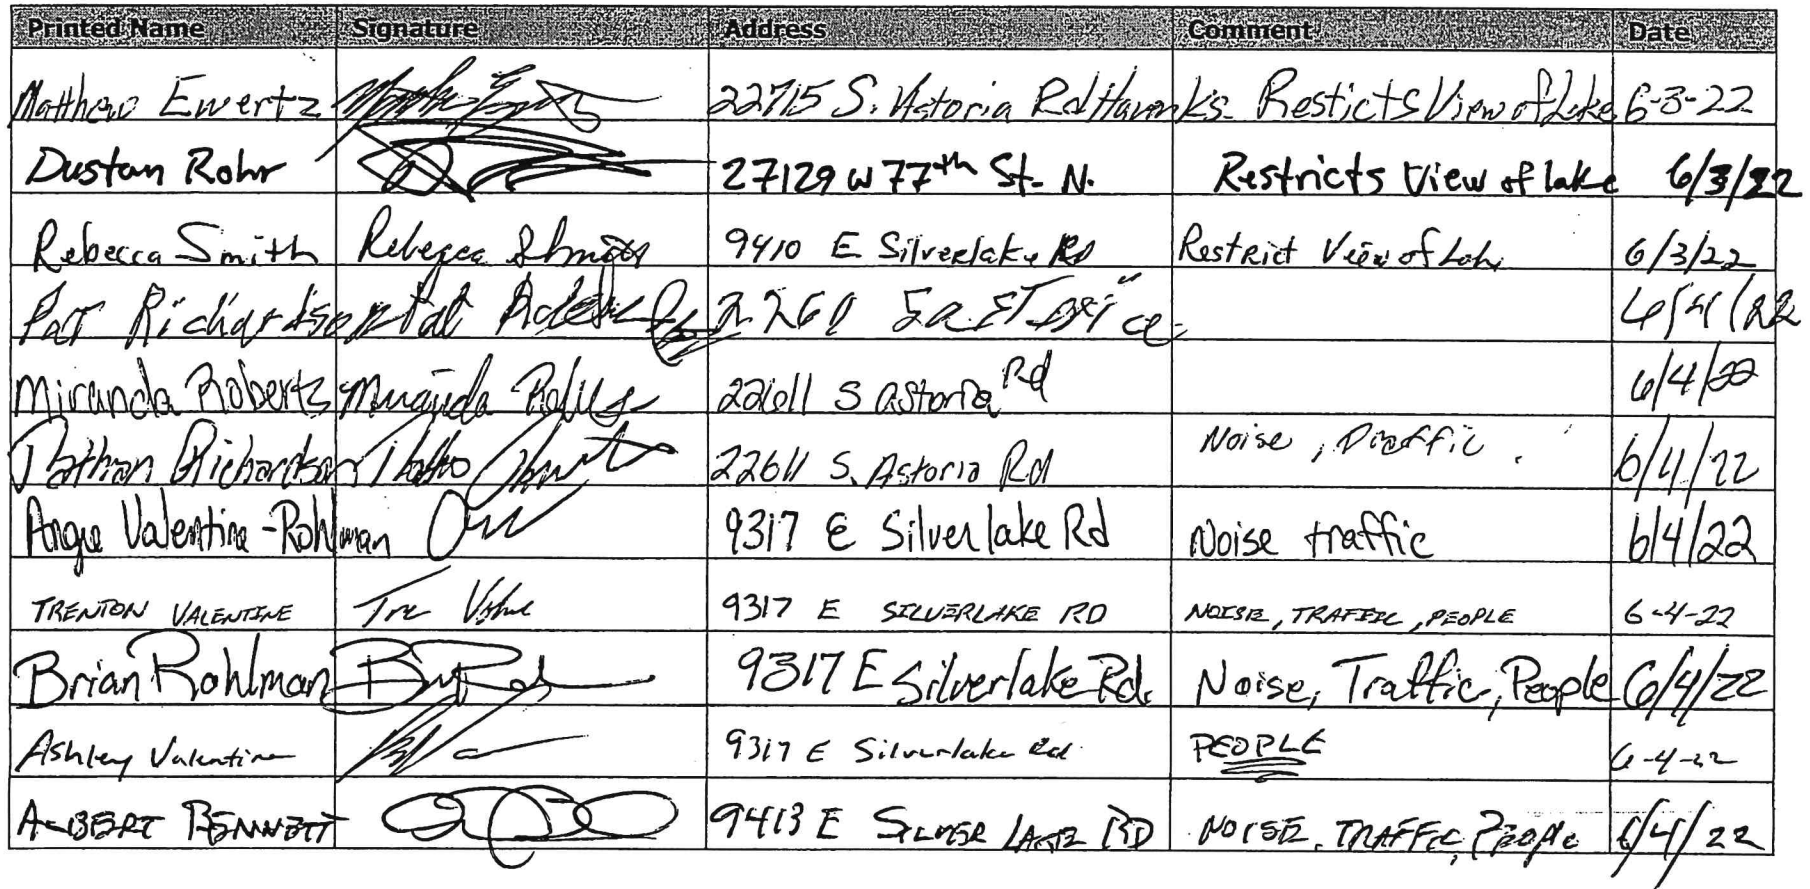 Printed Name Signature Address Comment Date
Matthew Ewertz 22715 S. Astoria Rd Resticts View of Lake 6-3-22
Dustan Rohr 27129 W 77th St. N. Restricts View of lake 6/3/22
Rebecca Smith Rebecca Smith 9410 E Silverlake Rd Restrict View of 6/3/22
Pat Richardson Pat 2260 East Drice 6/4/22
Miranda Roberts Miranda 22611 S Astoria Rd 6/4/22
Richardson 22611 S. Astoria Rd Noise, 6/4/22
Angie Valentine-Rohlman 9317 E Silverlake Rd Noise traffic 6/4/22
TRENTON VALENTINE 9317 E SILVERLAKE RD NOISE, TRAFFIC, PEOPLE 6-4-22
Brian Rohlman 9317 E Silverlake Rd. Noise, Traffic, People 6/4/22
Ashley Valentine 9317 E Silverlake Rd PEOPLE 6-4-22
ALBERT BENNETT 9413 E SILVER LAKE RD NOISE, TRAFFIC, PEOPLE 6/4/22